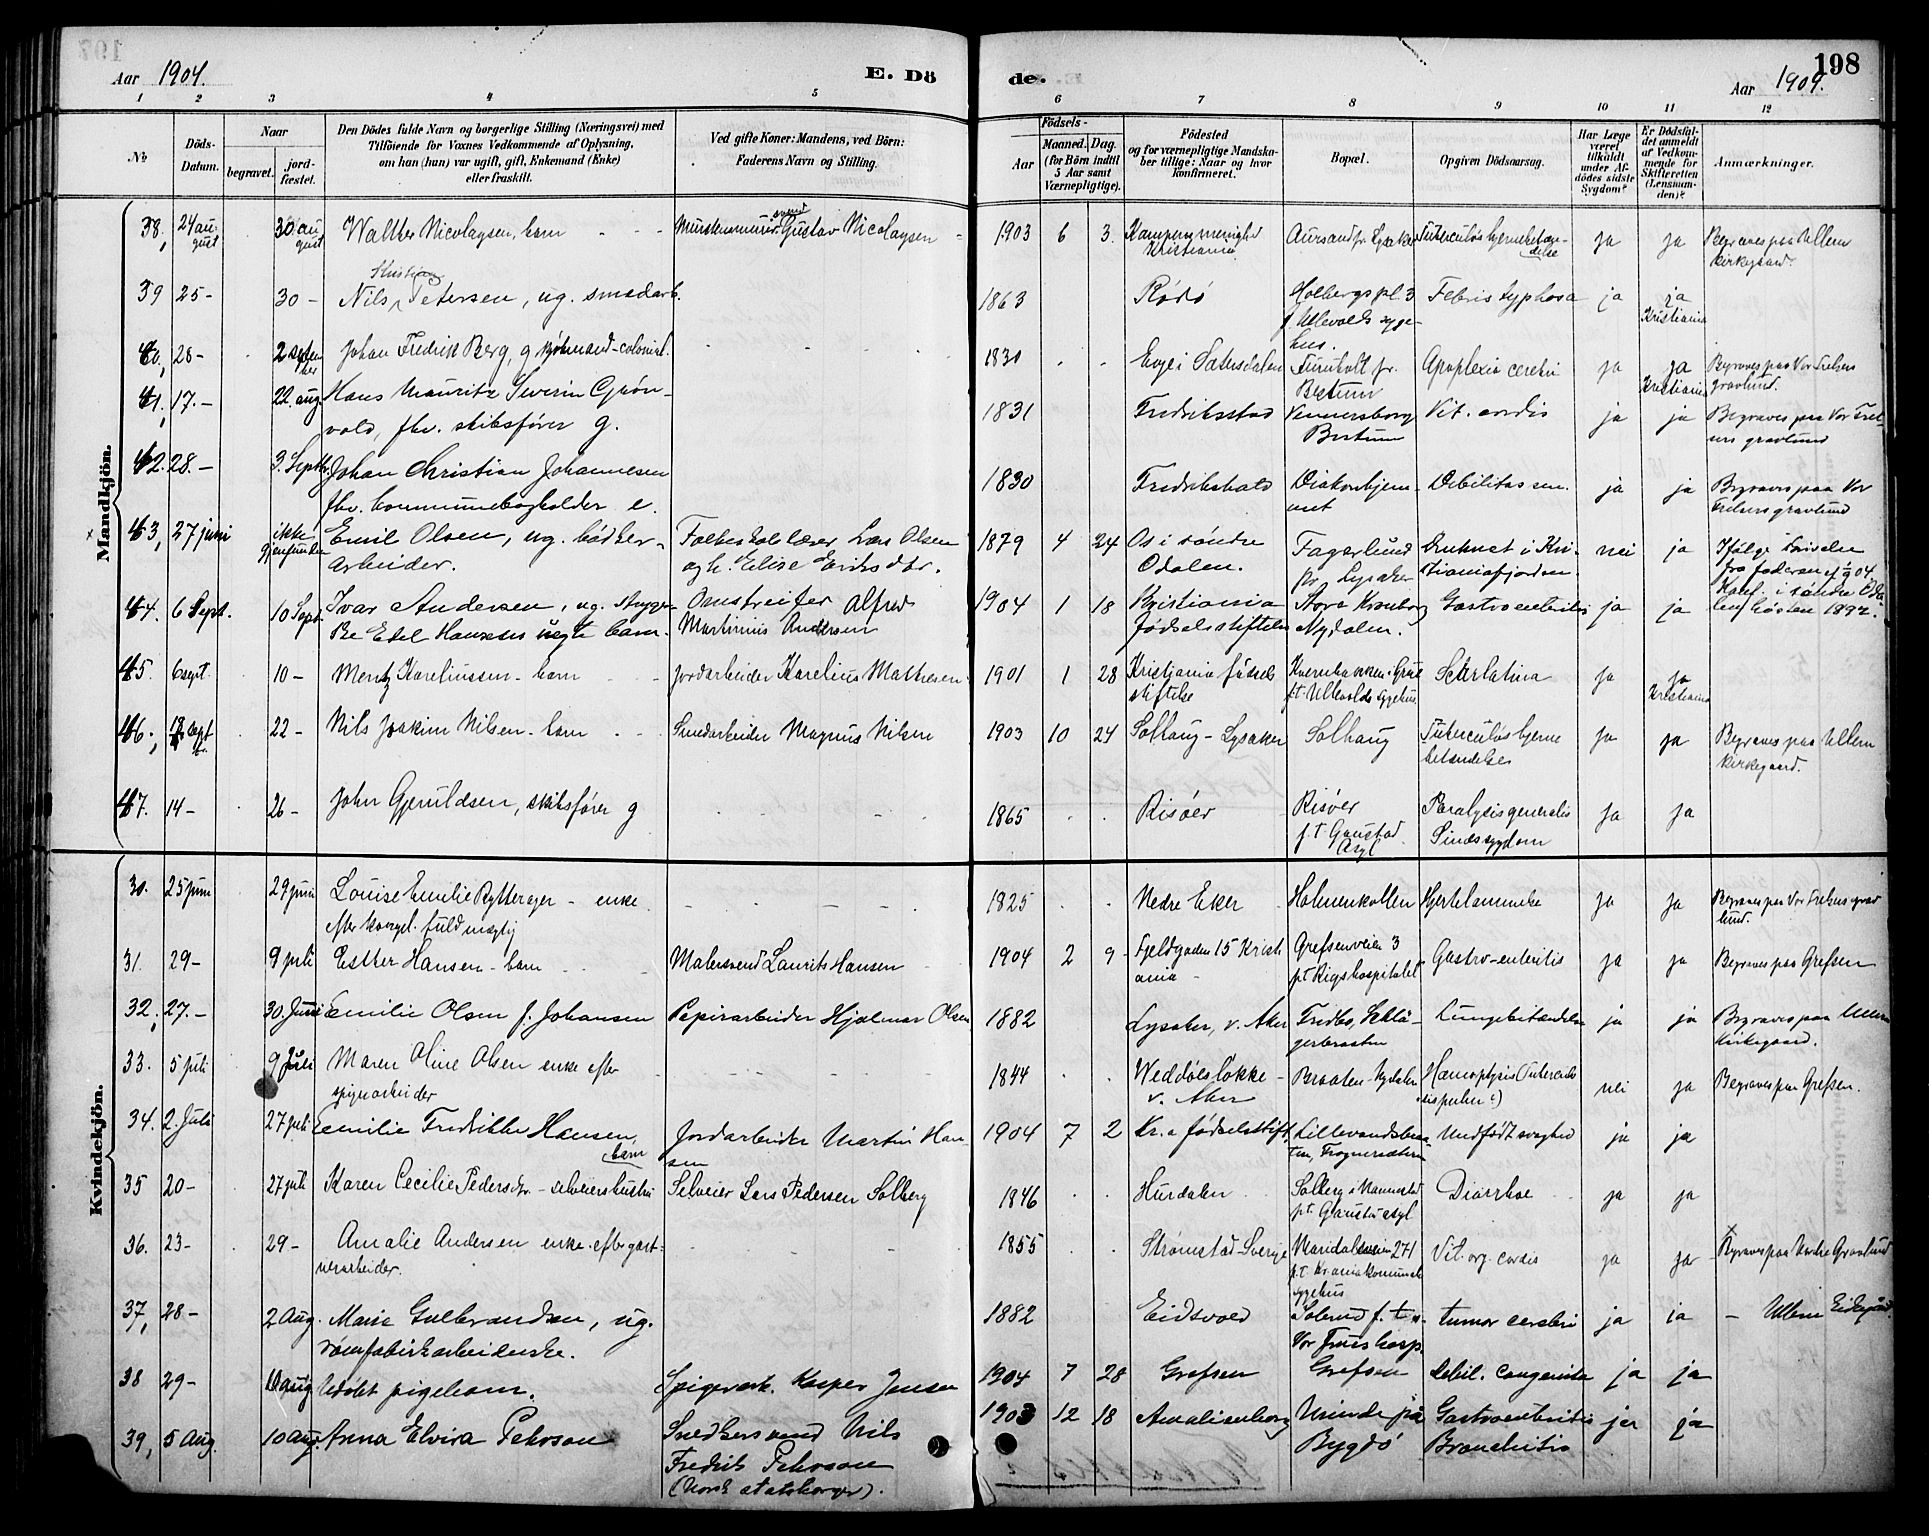 Aar 1904.
E. Dö
de.
Aar 1904.
198
1 2 3 4 5 6 7 8 9 10 11 12
No
Döds-
Datum.
Naar
begravet.
jord-
fæstet.
Den Dödes fulde Navn og borgerlige Stilling (Næringsvei) med
Tilföiende for Voxnes Vedkommende af Oplysning,
om han (hun) var ugift, gift, Enkemand (Enke)
eller fraskilt.
Ved gifte Koner: Mandens, ved Börn:
Faderens Navn og Stilling.
Födsels-
Aar
Maaned. Dag.
(for Börn indtil
5 Aar samt
Værnepligtige).
Födested
og for værnepligtige Mandska-
ber tillige: Naar og hvor
konfirmeret.
Bopæl.
Opgiven Dödsaarsag.
Har Læge
været
tilkaldt
under Af-
dödes sidste
Sygdom?
Er Dödsfal-
det anmeldt
af Vedkom-
mende for
Skifteretten
(Lensman-
den)?
Anmærkninger.
Mandkjön.
38, 24 august 30 august Walther Nicolaysen, barn Murstensmurersvend Gustav Nicolaysen 1903 6 3 Kampens menighed Kristiania Aursand pr. Lysaker Tuberculøs hjernebetændelse ja ja Begraves paa Ullern kirkegaard.
39 25- 30- Nils Kristian Petersen, ug. smedarb. 1863 Rödö Holbergs pl. 3 f. Ullevolds sygehus. Febris typhosa ja ja Kristiania
40, 28- 2 september Johan Fredrik Berg, g kjøbmand-colonial. 1830 Evje i Sætersdalen Furuholt pr. Bestum Apoplexia cerebri ja ja Kristiania Begraves paa Vor Frelsers gravlund.
41, 17.- 22. aug. Hans Mauritz Severin Grönvold, fhv. skibsfører g. 1831 Fredriksstad Vennersborg Bestum Vit. cordis ja ja Begraves paa Vor Frelsers gravlund
42. 28.- 3. Septb. Johan Christian Johannesen fhv. Communebogholder e. 1830 Fredrikshald Diakonhjemmet Debilitas sen. ja ja Begraves paa Vor Frelsers gravlund
43, 27 juni ikke gjenfunden Emil Olsen, ug. bödkerarbeider. Folkeskolelærer Lars Olsen og h. Elise Eriksdtr. 1879 4 24 Os i söndre Odalen. Fagerlund pr. Lysaker Druknet i Kristianiafjorden nei ja Ifölge skrivelse fra faderen Konf. i søndre Odalen høsten 1892.
44. 6 Sept. 10 Sept. Ivar Andersen, ug. Edel Hansens uegte barn. Omstreifer Alfred Martinius Andersen 1904 1 18 Kristiania fødselsstiftelse Store Kronborg Nydalen. Gastroenteritis ja ja
45. 6 sept. 10- Mentz Kareliussen - barn Jordarbeider Karelius Mathesen 1901 1 28 Kristiania fødselsstiftelse f.t. Ullevolds sygehus Scarlatina ja ja Kristiania
46, sept 22- Nils Joakim Nilsen - barn Smedarbeider Magnus Nilsen 1903 10 24 Solhaug - Lysaker Solhaug Tuberculøs hjernebetændelse ja ja Begraves paa Ullern kirkegaard.
47. 14- 26- John Gjeruldsen, skibsfører g 1865 Risöer Risöer f.t. Gaustad Asyl Paralysis generalis Sindssygdom ja ja
Kvindekjön.
30. 25 juni 29 juni Louise Emilie Rytterager - enke efter fuldmægtig 1825 Nedre Eker Holmenkollen Hjertelammelse ja ja Begraves paa Vor Frelsers gravlund.
31. 29- 9 juli Esther Hansen - barn Malersvend Laurits Hansen 1904 2 9 Fjeldgaden 15 Kristiania Grefsenveien 3 p.t. Rigshospitalet Gastro-enteritis ja ja Begraves paa Grefsen
32, 27.- 30. Juni Emilie Olsen f. Johansen Papirarbeider Hjalmar Olsen 1882 Lysaker, v. Aker Fridbo, Lungebetændelse ja ja Begraves paa Ullern Kirkegaard.
33. 5 juli 9 Juli Maren Oline Olsen enke efter spigerarbeider 1844 Weddøesløkke - v. Aker Braaten - Nydalen Hæmoptysis Tuberculosis pulm ?) nei ja Begraves paa Grefsen.
34. 2. Juli 27 juli Emilie Fredrikke Hansen, barn Jordarbeider Martin Hansen 1904 7 2 Kr.a fødselsstift. Lillevandsbraaten, Frognersæteren Medfødt svaghed ja ja
35 20- 27 juli Karen Cecilie Pedersdtr. - selveierhustru Selveier Lars Pedersen Solberg 1846 Hurdalen Solberg i Nannestad p.t. Gaustad asyl Diarrhoe ja ja
36. 23- 29- Amalie Andersen enke efter gartnerarbeider. 1855 Strømstad - Sverige Maridalsveien 271 p.t. Kr.ania kommunale sygehus Vit. org. cordis ja ja Begraves paa Nordre Gravlund
37, 28- 2 Aug. Marie Gulbrandsen, ug. sømfabrikarbeiderske. 1882 Eidsvold Solerud f. t. Vor Frues hosp. Tumor cerebri ja ja - Ullern
38 29- 10 aug Udøbt pigebarn. Spigerverk. Kasper Jensen 1904 7 28 Grefsen Grefsen Debil. congenita ja ja
39, 5 Aug. 10 Aug. Anna Elvira Pehrson Snedkersvend Nils Fredrik Pehrson (Norsk statsborger). 1903 12 18 Amalienborg Bygdö Gastroenteritis Bronchitis ja ja